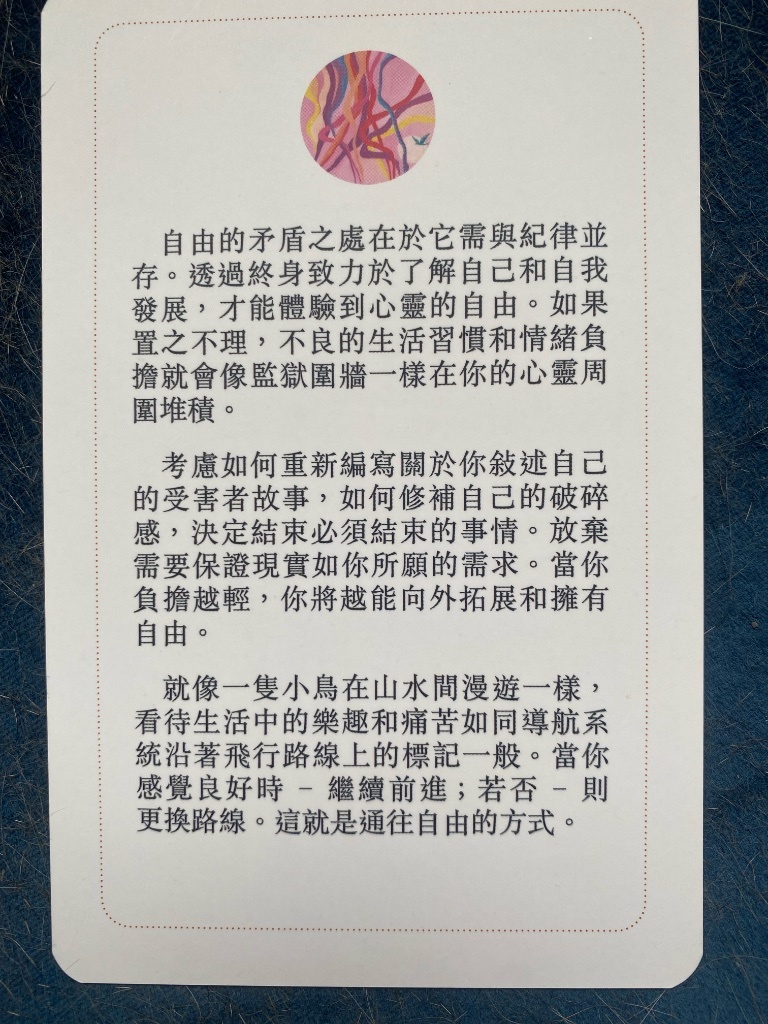 自由的矛盾之處在於它需與紀律並
存。透過終身致力於了解自己和自我
發展，才能體驗到心靈的自由。如果
置之不理，不良的生活習慣和情緒負
擔就會像監獄圍牆一樣在你的心靈周
圍堆積。
考慮如何重新編寫關於你敍述自己
的受害者故事，如何修補自己的破碎
感，決定結束必須結束的事情。放棄
需要保證現實如你所願的需求。當你
負擔越輕，你將越能向外拓展和擁有
自由。
就像一隻小鳥在山水間漫遊一樣，
看待生活中的樂趣和痛苦如同導航系
統沿著飛行路線上的標記一般。當你
感覺良好時 – 繼續前進；若否 – 則
更換路線。這就是通往自由的方式。